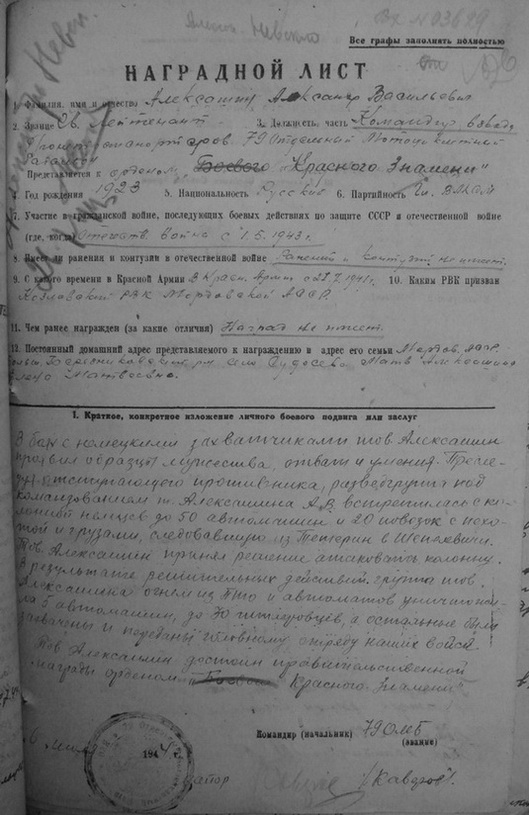 Вх N 03689
Алекс. Невского
Все графы заполнять полностью
НАГРАДНОЙ ЛИСТ
1. Фамилия, имя и отчество Алексашин Александр Васильевич
2. Звание Гв. Лейтенант 3. Должность, часть Командир взвода
бронетранспортеров 79 Отдельный Мотоциклетный
Батальон
Представляется к ордену „Боевого Красного Знамени"
4. Год рождения 1923 5. Национальность Русский 6. Партийность Чл. ВЛКСМ
7. Участие в гражданской войне, последующих боевых действиях по защите СССР и отечественной войне
(где, когда) Отечеств. война с 1.5.1943г.
8. Имеет ли ранения и контузии в отечественной войне Ранений и контузий не имеет.
9. С какого времени в Красной Армии В Красн. Армии с 1941г. 10. Каким РВК призван
Козловский РВК Мордовской АССР
11. Чем ранее награжден (за какие отличия) Наград не имеет.
12. Постоянный домашний адрес представляемого к награждению и адрес его семьи Мордов. АССР
село Судосево Мать Алексашина
Елена Матвеевна.
1. Краткое, конкретное изложение личного боевого подвига или заслуг
В боях с немецкими захватчиками тов Алексашин
проявил образцы мужества, отваги и умения. Пресле-
дуя отступающего противника, разведгруппа под
командованием т. Алексашина А.В. встретилась с ко-
лонной немцев до 50 автомашин и 20 повозок с пехо-
той и грузами, следовавшую из Тетерин в Шепелевичи.
Тов Алексашин принял решение атаковать колонну.
В результате решительных действий группа тов.
Алексашина огнем из ПТО и автоматов уничтожи-
ла 5 автомашин, до 70 гитлеровцев, а остальные были
захвачены и переданы головному отряду наших войск.
Тов Алексашин достоин правительственной
награды орденом „Боевого Красного Знамени"
Командир (начальник) 79 ОМЦБ
(звание)
194
майор
/Кавдров/.